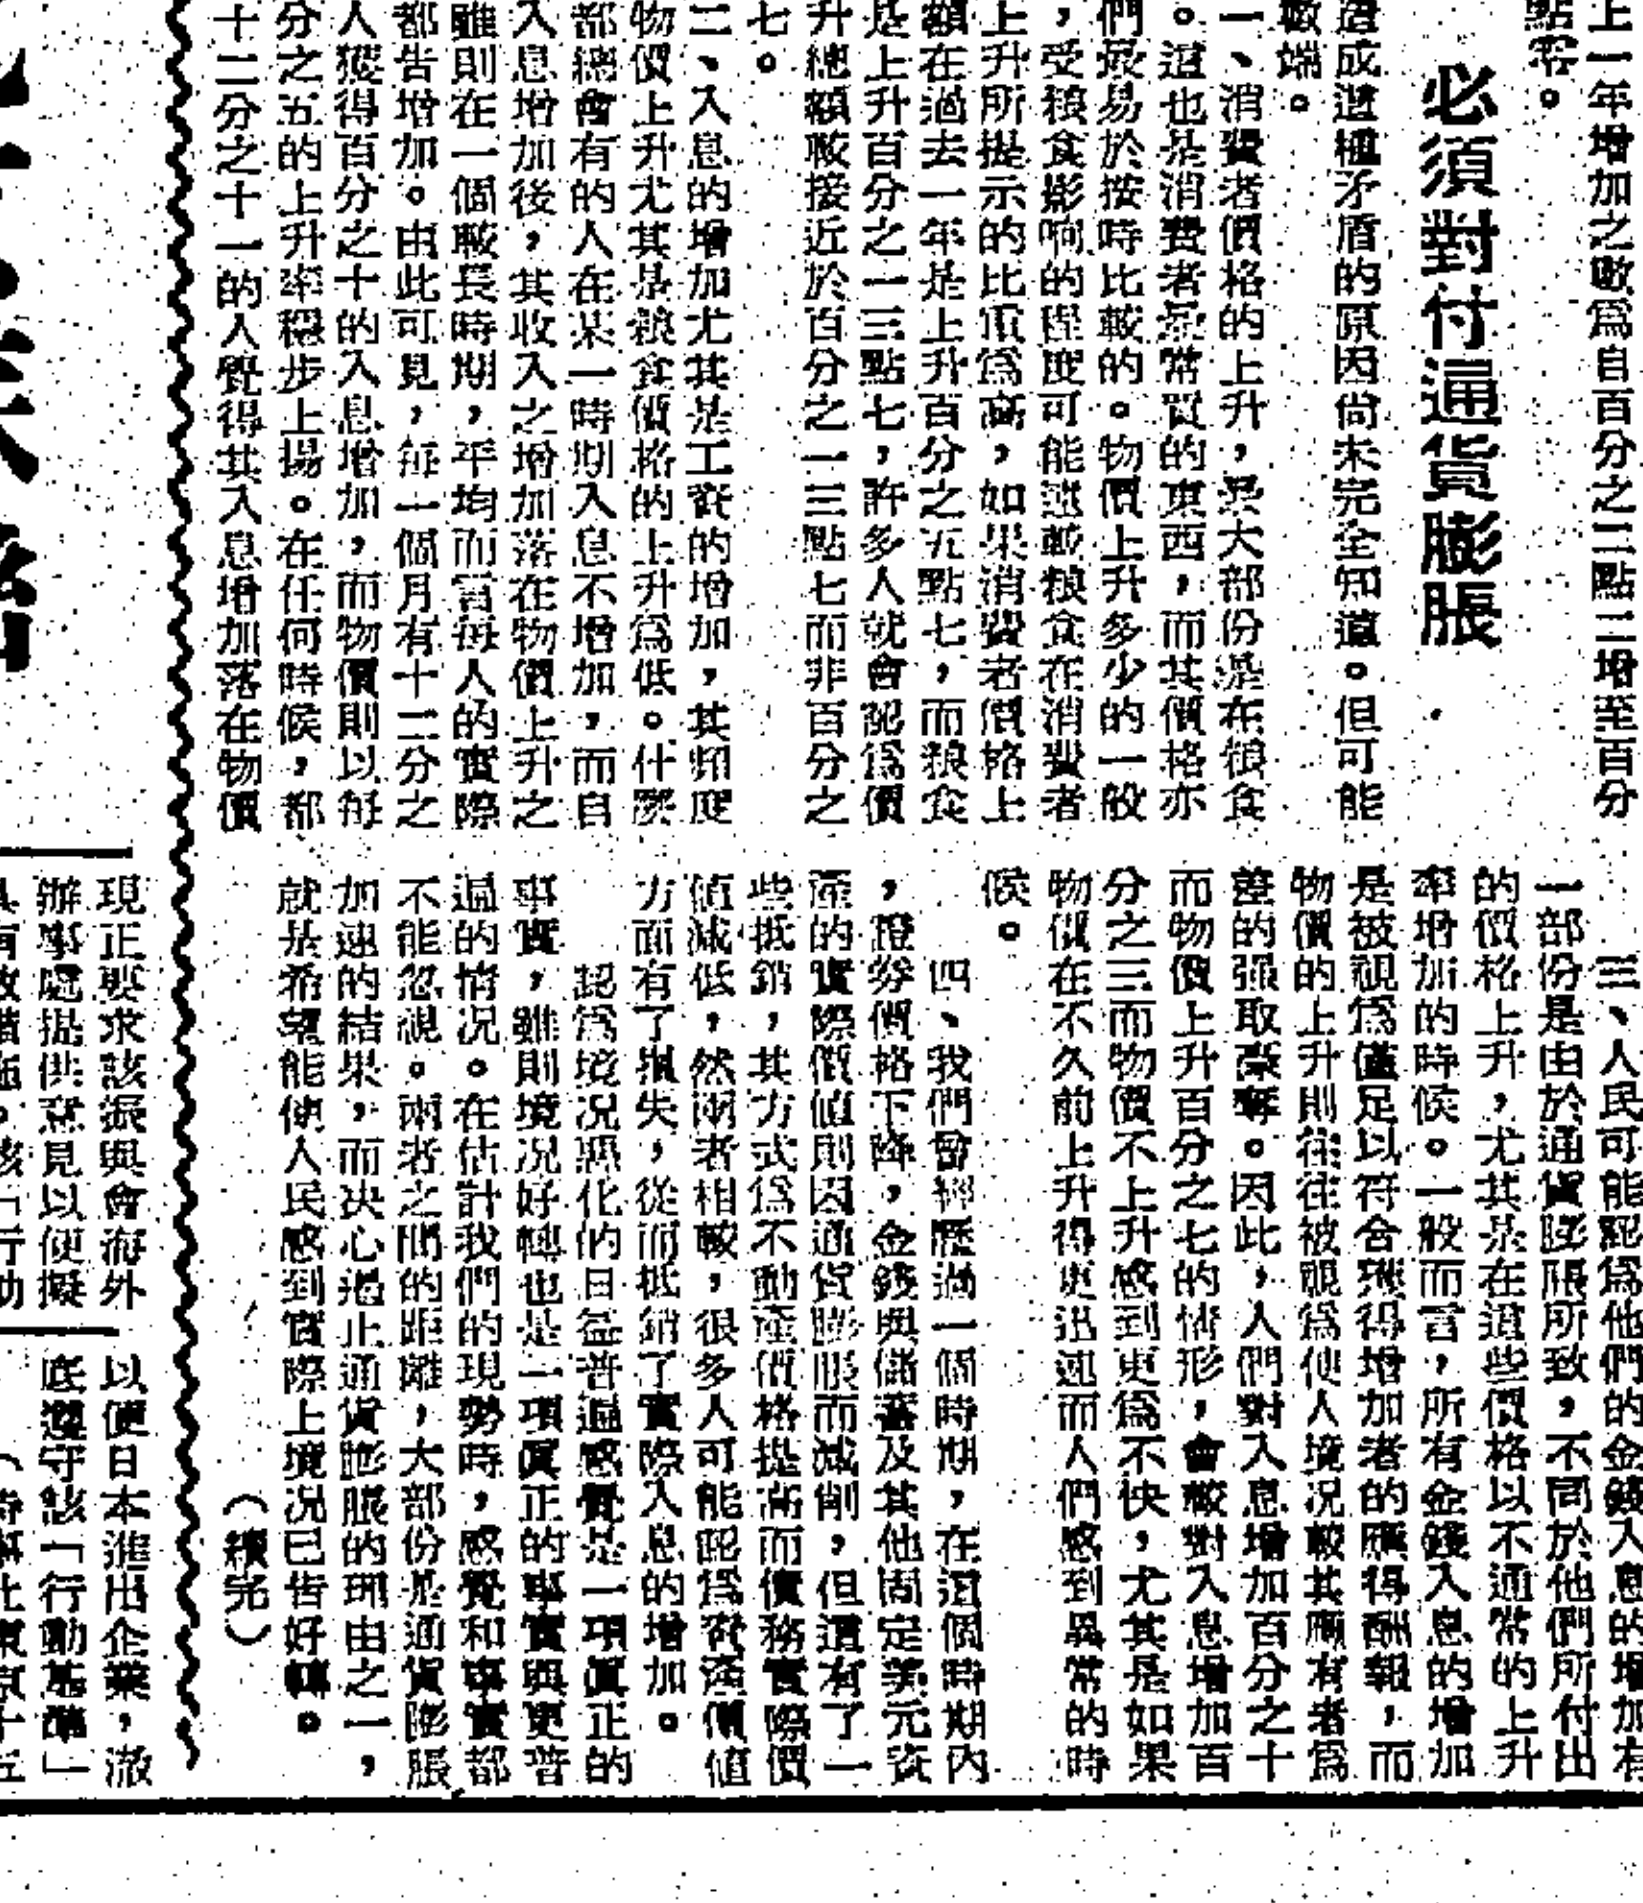 上一年增加之數爲自百分之二點二增至百分
點零。
必須對付通貨膨脹
造成這種矛盾的原因尚未完全知道。但可能
數端。
一、消費者價格的上升，是大部份是在粮食
。這也是消費者最常買的東西，而其價格亦
們最易於按時比較的。物價上升多少的一般
，受粮食影响的程度可能遠較粮食在消費者
上升所提示的比重爲高，如果消費者價格上
額在過去一年是上升百分之五點七，而粮食
是上升百分之一三點七，許多人就會認爲價
升總額較接近於百分之一三點七而非百分之
七。
二、入息的增加尤其是工資的增加，其頻度
物價上升尤其是粮食價格的上升爲低。什麽
部總會有的人在某一時期入息不增加，而自
入息增加後，其收入之增加落在物價上升之
雖則在一個較長時期，平均而言每人的實際
都告增加。由此可見，每一個月有十二分之
人獲得百分之十的入息增加，而物價則以每
分之五的上升率穩步上揚。在任何時候，都
十二分之十一的人覺得其入息增加落在物價
三、人民可能認爲他們的金錢入息的增加有
一部份是由於通貨膨脹所致，不同於他們所付出
的價格上升，尤其是在這些價格以不通常的上升
率增加的時候。一般而言，所有金錢入息的增加
是被視爲僅足以符合獲得增加者的應得酬報，而
物價的上升則往往被視爲使人境况較其應有者爲
差的强取豪奪。因此，人們對入息增加百分之十
而物價上升百分之七的情形，會較對入息增加百
分之三而物價不上升感到更爲不快，尤其是如果
物價在不久前上升得更迅速而人們感到異常的時
候。
四、我們曾經歷過一個時期，在這個時期內
，證券價格下降，金錢與儲蓄及其他固定美元資
產的實際價値則因通貨膨脹而減削，但還有了一
些抵銷，其方式爲不動產價格提高而債務實際價
值减低，然兩者相較，很多人可能認爲資產價値
方面有了損失，從而抵銷了實際入息的增加。
認爲境况惡化的日益普遍感覺是一項眞正的
事實，雖則境况好轉也是一項眞正的事實與更普
遍的情况。在估計我們的現勢時，感覺和事實都
不能忽視。兩者之間的距離，大部份是通貨膨脹
加速的結果，而决心遏止通貨膨脹的理由之一，
就是希望能使人民感到實際上境况已皆好轉。
（續完）
現正要求該振興會海外
辦事處提供意見以便擬
具有效措施。該「行動
以便日本進出企業，澈
底遵守該「行動基準」